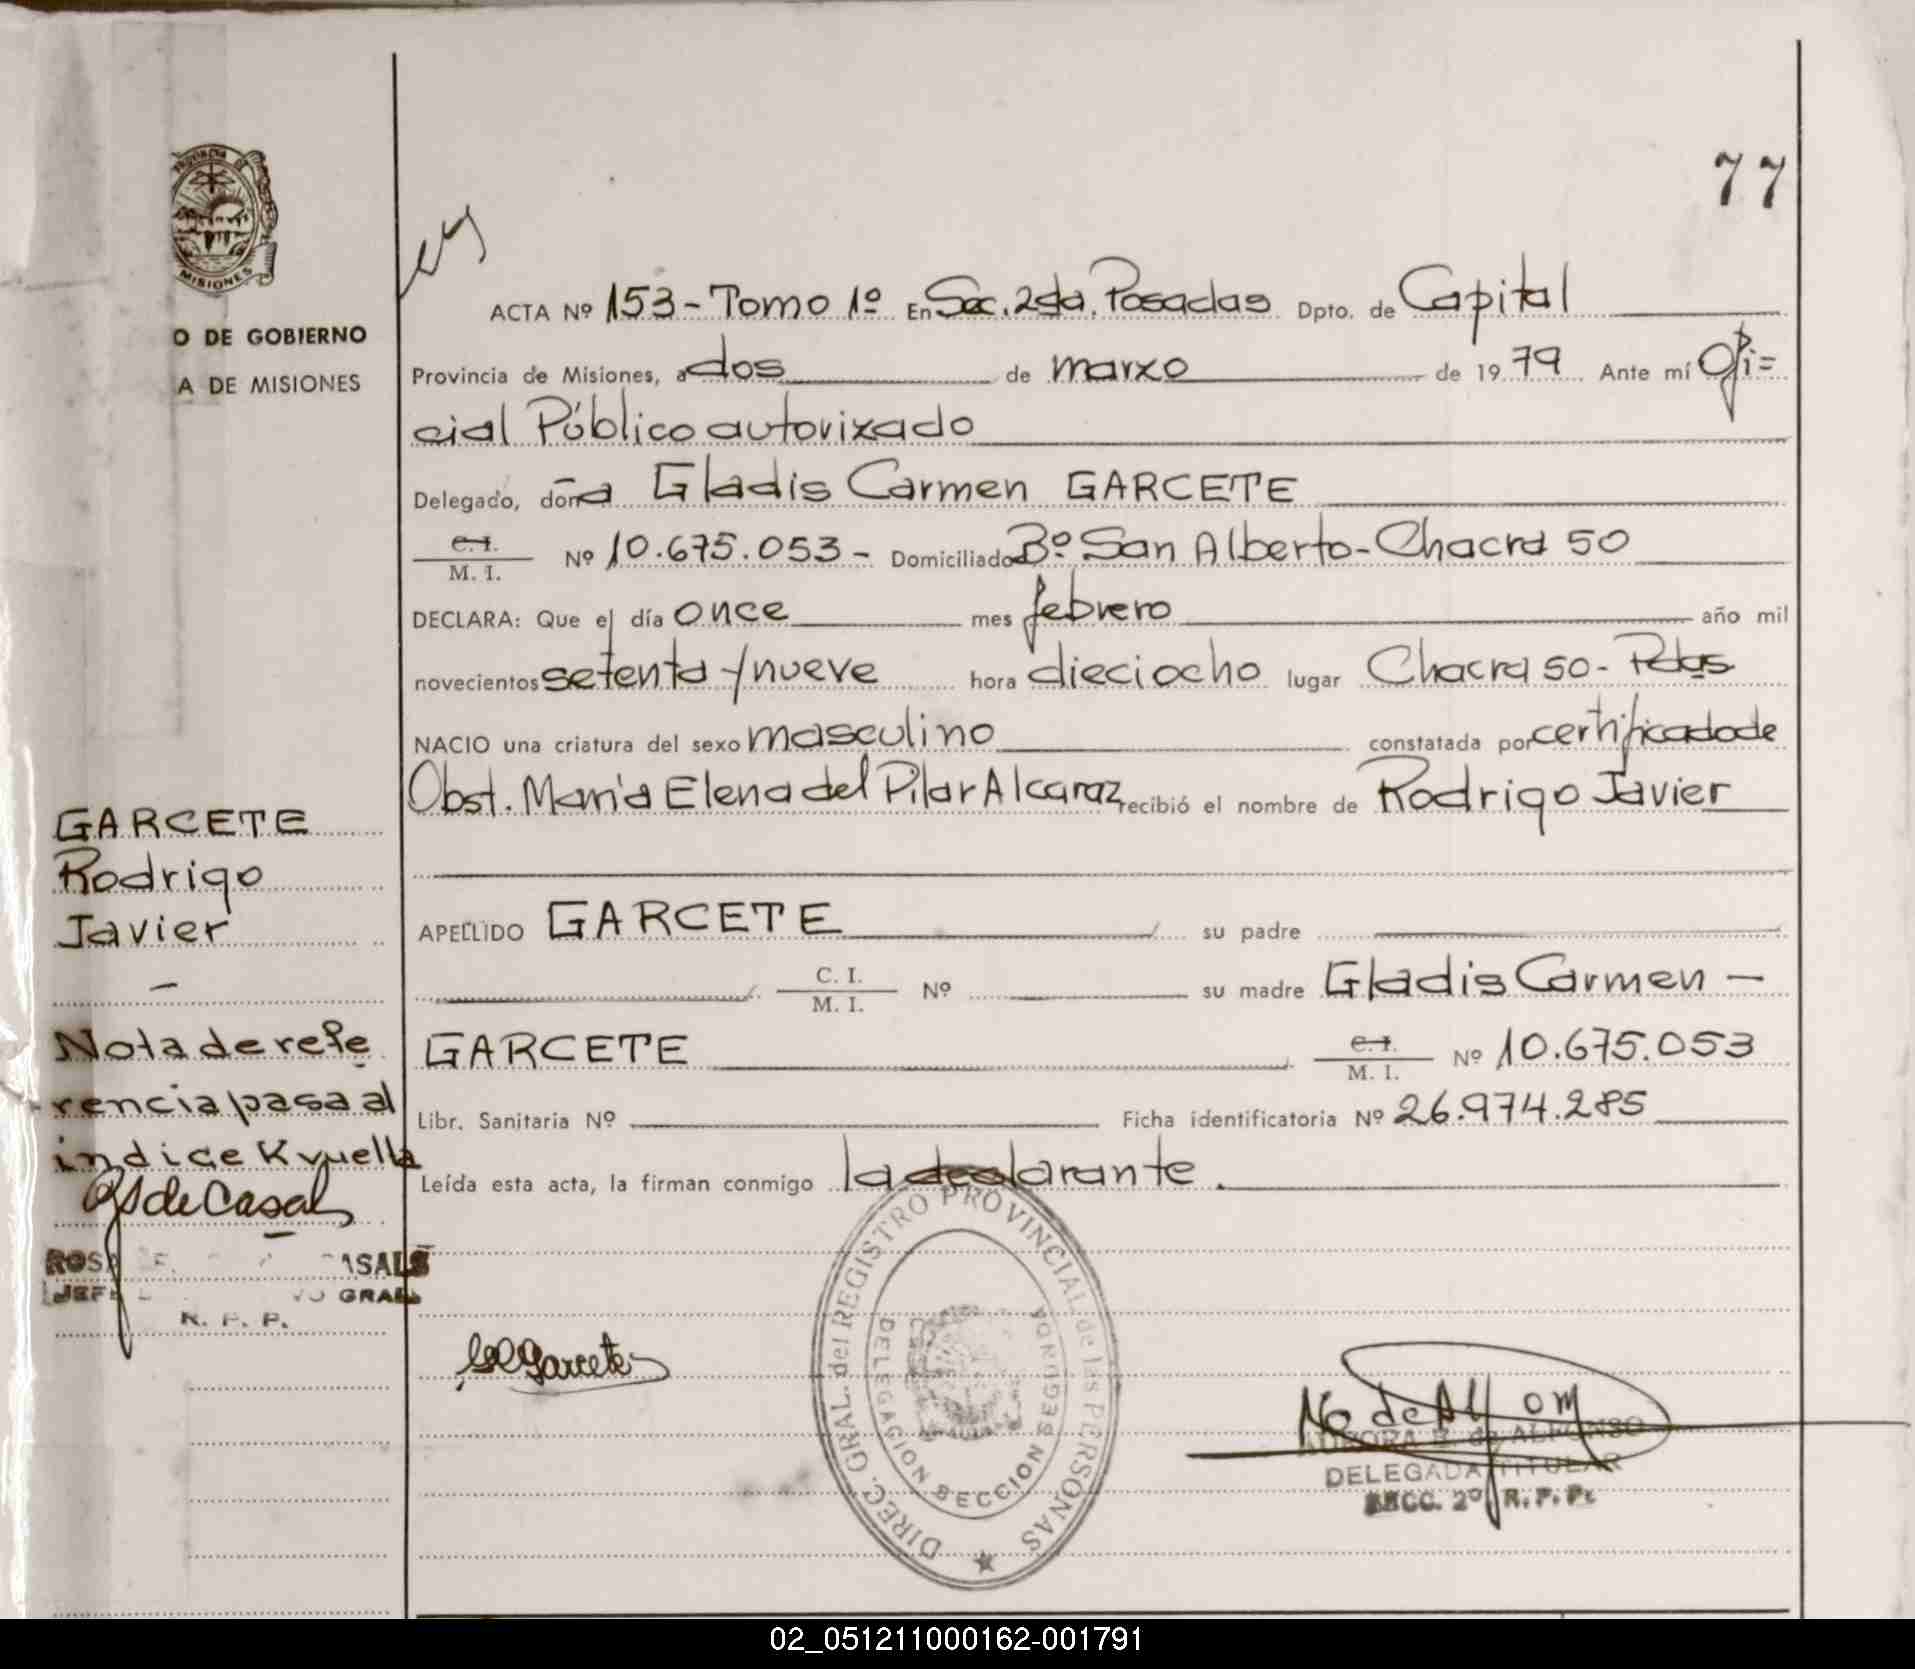 77
PROVINCIA DE
MISIONES
O DE GOBIERNO
A DE MISIONES
ACTA Nº 153 - Tomo 1º En Sec. 2da. Posadas Dpto. de Capital
Provincia de Misiones, a dos de marzo de 1979 Ante mí Ofi=
cial Público autorizado
Delegado, doña Gladis Carmen GARCETE
C. I.
M. I. Nº 10.675.053 - Domiciliado Bº San Alberto - Chacra 50
DECLARA: Que el día once mes febrero año mil
novecientos setenta y nueve hora dieciocho lugar Chacra 50 - Pdas
NACIO una criatura del sexo masculino constatada por certificado de
Obst. María Elena del Pilar Alcaraz recibió el nombre de Rodrigo Javier
APELLIDO GARCETE su padre
C. I.
M. I. Nº su madre Gladis Carmen -
GARCETE C. I.
M. I. Nº 10.675.053
Libr. Sanitaria Nº Ficha identificatoria Nº 26.974.285
Leída esta acta, la firman conmigo la declarante.
GARCETE
Rodrigo
Javier
-
Nota de refe
rencia pasa al
indice
de Casal
R. P. P.
Garcete
DIREC. GRAL. del REGISTRO PROVINCIAL de las PERSONAS
DELEGACION SECCION SEGUNDA
AURORA E. de ALFONSO
DELEGADA TITULAR
SECC. 2º R. P. P.
02_051211000162-001791